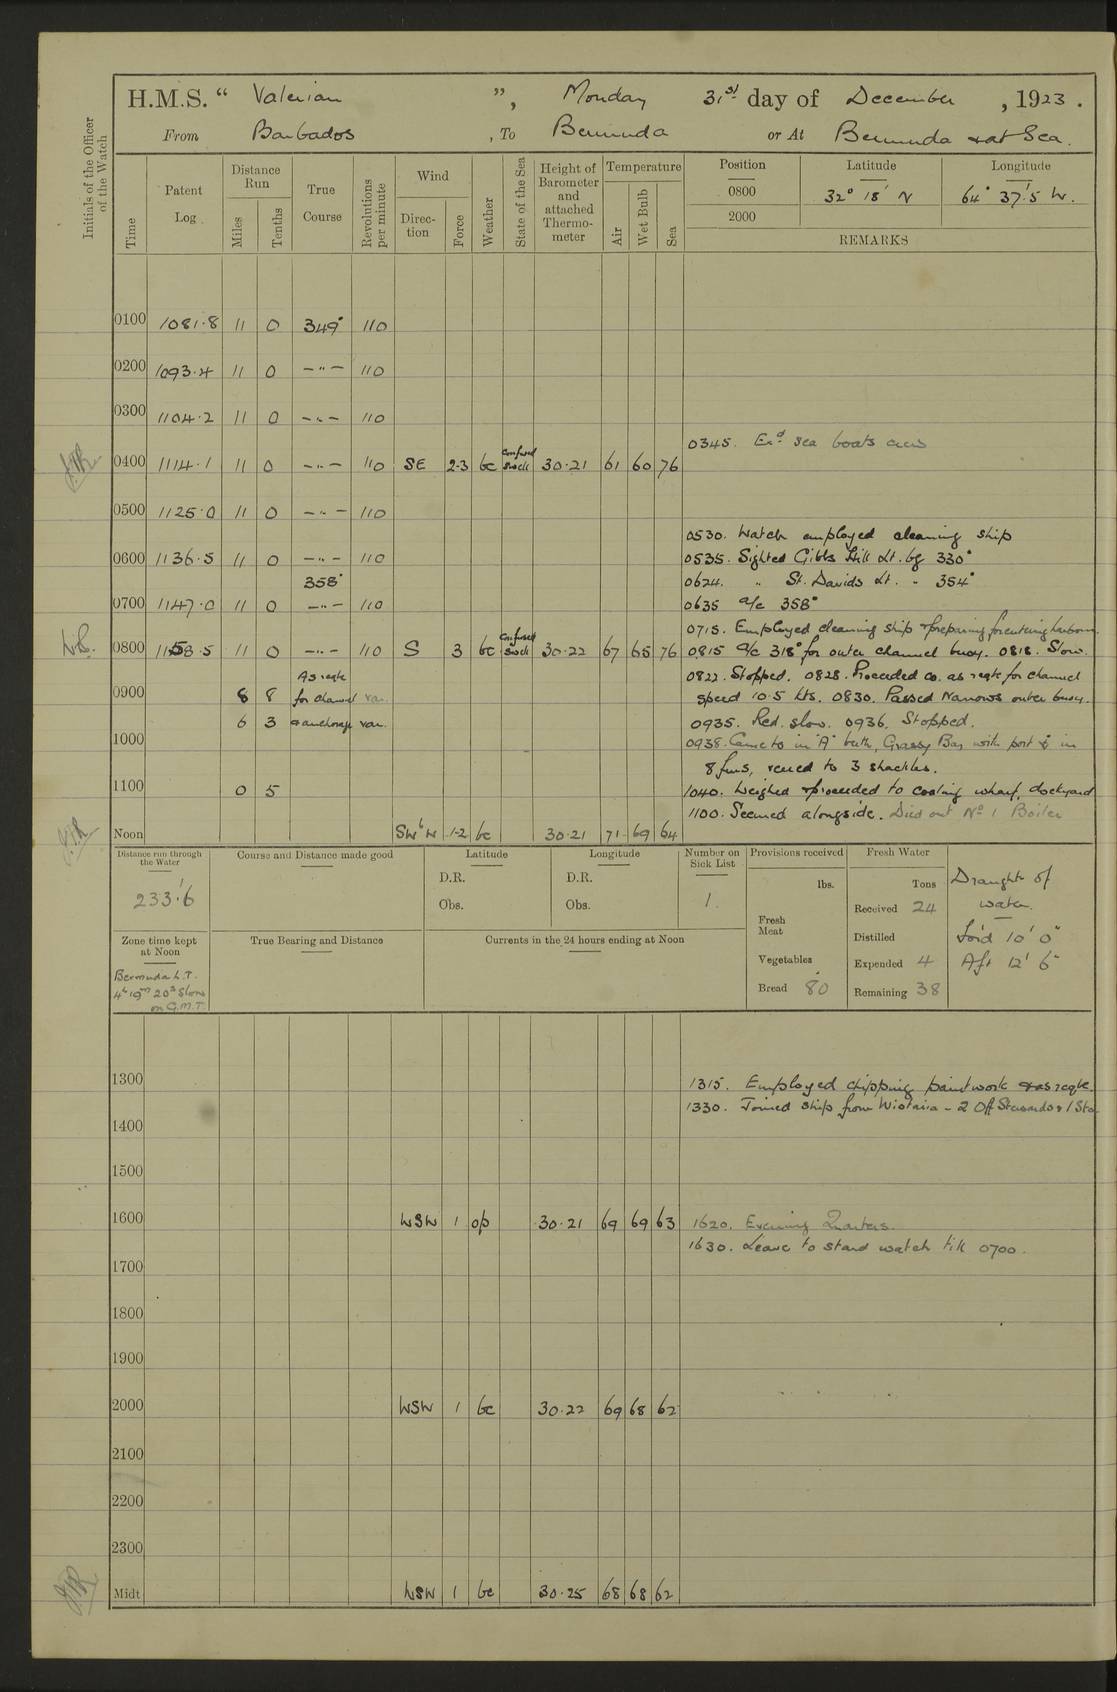 H.M.S. “ Valerian ”, Monday 31st day of December , 1923 .
From Barbados , To Bermuda or At Bermuda & at Sea.
Initials of the Officer of the Watch
Time
Patent Log
Distance Run
Miles
Tenths
True Course
Revolutions per minute
Wind
Direc-tion
Force
Weather
State of the Sea
Height of Barometer and attached Thermo-meter
Temperature
Air
Wet Bulb
Sea
Position Latitude Longitude
0800 32° 18' N 64° 37'.5 W.
2000
REMARKS
0100 1081.8 11 0 349° 110
0200 1093.4 11 0 -"- 110
0300 1104.2 11 0 -"- 110
0345. Exd sea boats crew
0400 1114.1 11 0 -"- 110 SE 2-3 bc confused swell 30.21 61 60 76
0500 1125.0 11 0 -"- 110
0530. Watch employed cleaning ship
0600 1136.5 11 0 -"- 110 0535. Sighted Gibbs Hill Lt. bg 330°
358° 0624. " St. Davids Lt. " 354°
0700 1147.0 11 0 -"- 110 0635 a/c 358°
0715. Employed cleaning ship & preparing for entering harbour.
0800 1158.5 11 0 -"- 110 S 3 bc confused swell 30.22 67 65 76 0815 a/c 318° for outer channel buoy. 0818. Slow.
As reqte 0822. Stopped. 0828. Proceeded co. as reqte for channel
0900 8 8 for channel var. speed 10.5 kts. 0830. Passed Narrows outer buoy.
6 3 & anchorage var. 0935. Red. slow. 0936. Stopped.
1000 0938. Came to in "A" berth, Grassy Bay with port ⚓ in
8 fms, veered to 3 shackles.
1100 0 5 1040. Weighed & proceeded to coaling wharf, dockyard
1100. Secured alongside. Died out No 1 Boiler
Noon SW b W 1-2 bc 30.21 71 69 64
Distance run through the Water
233.6
Course and Distance made good
Latitude
D.R.
Obs.
Longitude
D.R.
Obs.
Number on Sick List
1.
Provisions received
lbs.
Fresh Meat
Vegetables
Bread 80
Fresh Water
Tons
Received 24
Distilled
Expended 4
Remaining 38
Draught of water.
For'd 10' 0"
Aft 12' 6"
Zone time kept at Noon
Bermuda L.T.
4h 19m 20s Slow
on G.M.T.
True Bearing and Distance
Currents in the 24 hours ending at Noon
1300 1315. Employed chipping paintwork & as reqte.
1330. Joined ship from Wistaria - 2 Off Stewards & 1 Sto.
1400
1500
1600 WSW 1 op 30.21 69 69 63 1620. Evening Quarters.
1630. Leave to stand watch till 0700.
1700
1800
1900
2000 WSW 1 bc 30.22 69 68 62
2100
2200
2300
Midt WSW 1 bc 30.25 68 68 62